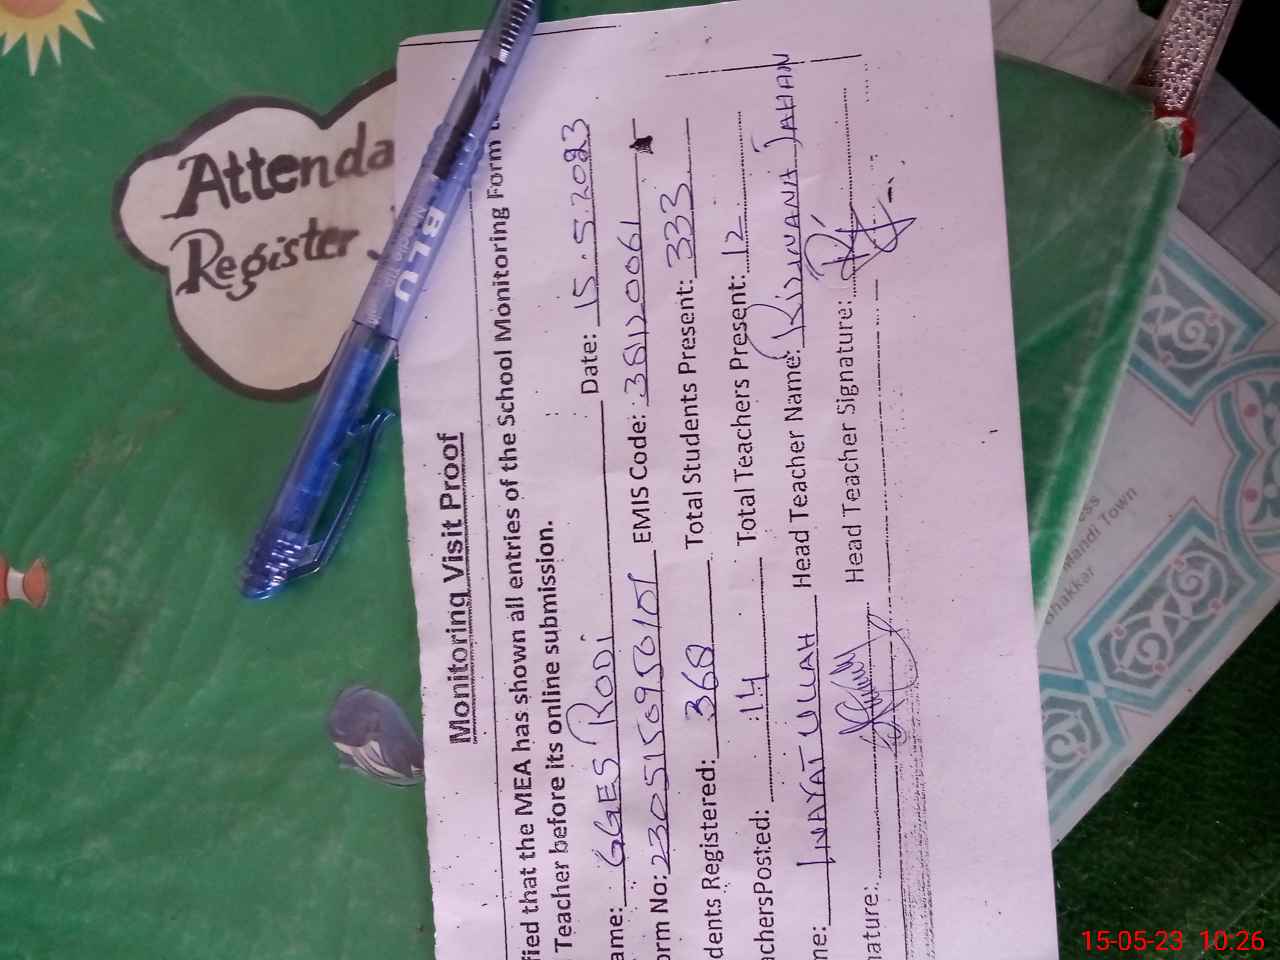 Attenda
Register
BLU
Monitoring Visit Proof
fied that the MEA has shown all entries of the School Monitoring Form t
Teacher before its online submission.
ame: GGES RODI Date: 15.5.2023
orm No: 230515095010T EMIS Code: 38120061
dents Registered: 368 Total Students Present: 333
achersPosted: 14 Total Teachers Present: 12
me: INAYAT ULLAH Head Teacher Name: RIZWANA JAHAN
nature: Head Teacher Signature:
ess
Mandi Town
Bhakkar
15-05-23 10:26